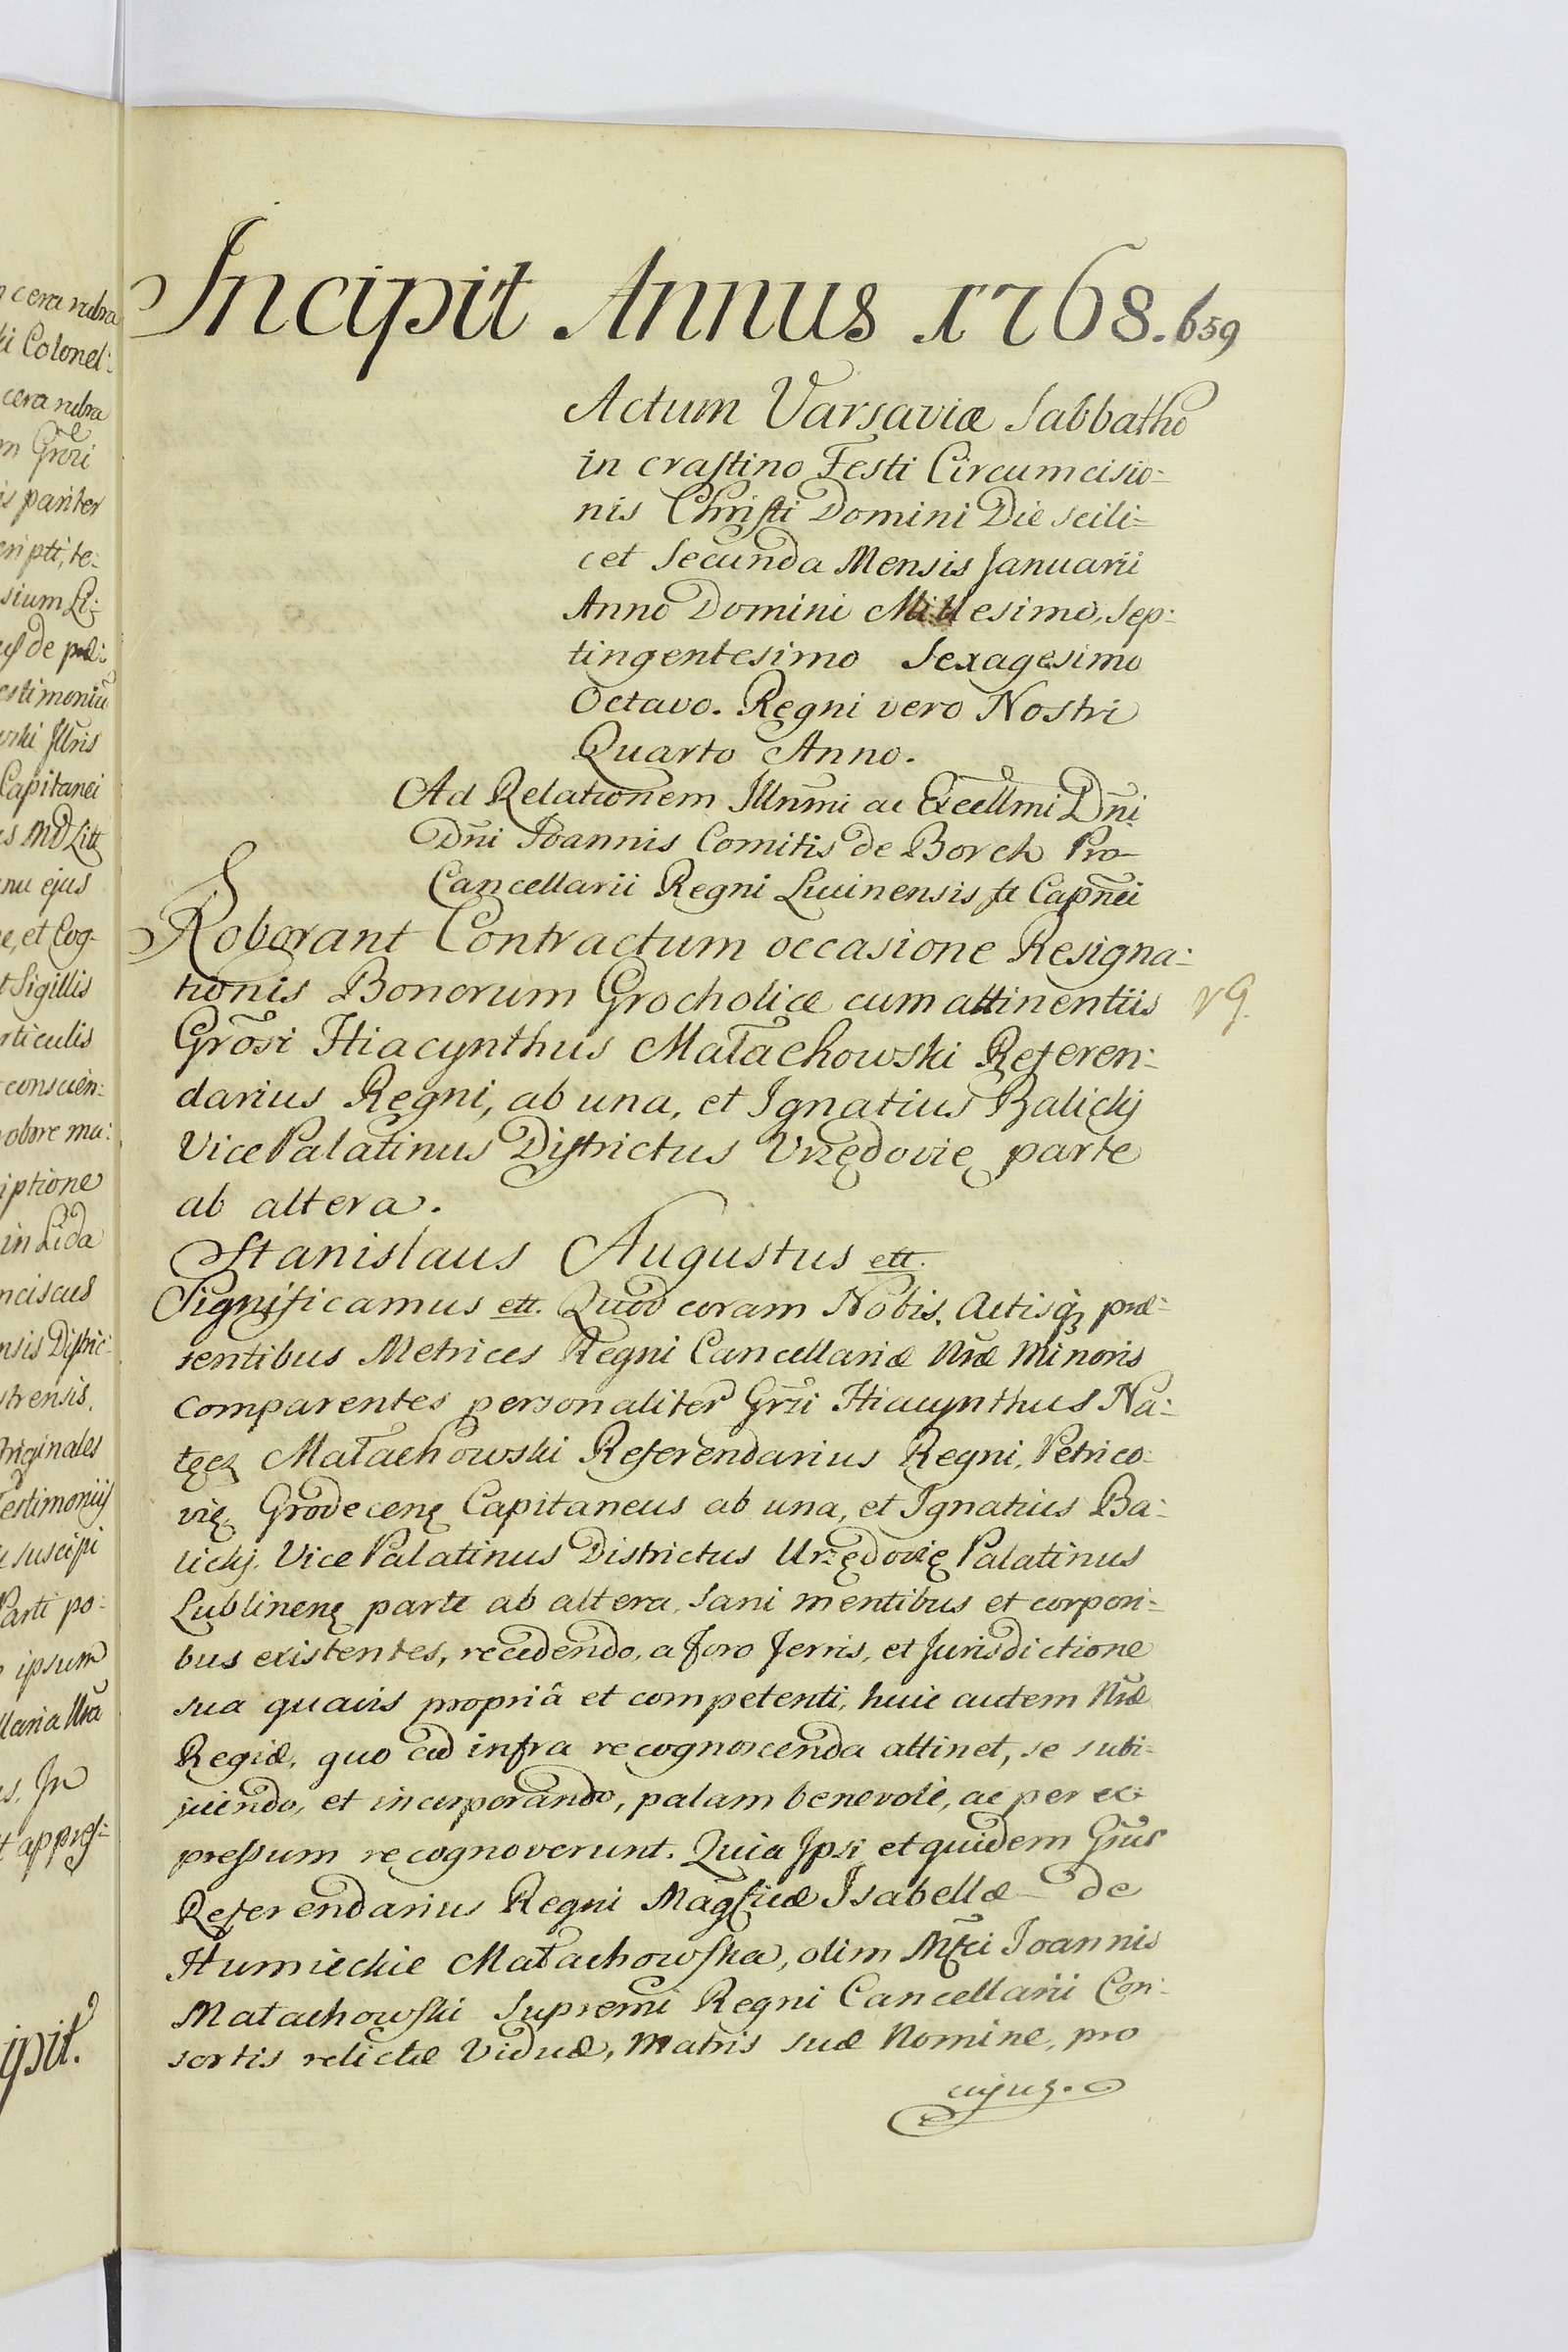 cera rubra
ki Colonel:
cera rubra
m Grõzi
is pariter
eripti, te:
sium Li:
de præ:
estimoniũ
wski Jllris
Capitanei
es MD Litt
nu ejus
e, et Cog-
t Sigillis
rticulis
conscien:
obore ma:
iptione
in Lida
nciscus
nsis Distric:
strensis.
Originales
Testimoniis
suscipi
Parti po:
ipsum
llaria Nrã
s. Jn
t appres:
ipit.
Incipit Annus 1768. 659
Actum Varsaviæ Sabbatho
in crastino Festi Circumcisio=
nis Christi Domini Die scili=
cet Secunda Mensis Januarii
Anno Domini Millesimo, Sep:
tingentesimo Sexagesimo
Octavo. Regni vero Nostri
Quarto Anno.
Ad Relationem Jllnmi ac Excellmi Dñi
Dñi Joannis Comitis de Borch Pro-
Cancellarii Regni Lucinensis Capñei
Roborant Contractum occasione Resigna:
tionis Bonorum Grocholice cum attinentiis
Grõsi Hiacynthus Małachowski Referen:
darius Regni, ab una, et Ignatius Balickj
Vice Palatinus Districtus Vrzędovię parte
ab altera.
Stanislaus Augustus ett.
Significamus ett. Quod coram Nobis. Actisq præ:
sentibus Metrices Regni Cancellariæ Nræ Minoris
comparentes personaliter Grzi Hiacynthus Na:
tęcz Małachowski Referendarius Regni, Petrico:
vię. Grodecenę Capitaneus ab una, et Ignatius Ba:
lickj. Vice Palatinus Districtus Urzędovię Palatinus
Lublinenę parte ab altera. Sani mentibus et corpori:
bus existentes, recedendo, a foro Terris, et Jurisdictione
sua quavis propriâ et competenti, huic autem Nræ
Regiæ, quo ad infra recognoscenda attinet, se subi:
jiciendo, et incorporando, palam benevolè, ac per ex:
pressum recognoverunt. Quia Jpsi et quidem Grus
Referendarius Regni Magficæ Isabellæ de
Humieckie Małachowska, olim Mfci Joannis
Małachowski Supremi Regni Cancellarii Con:
sortis relictæ Viduæ, Matris suæ Nomine, pro
cujus.